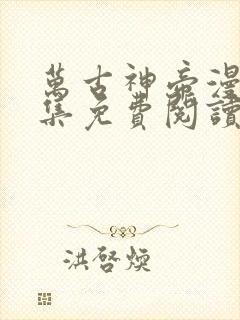 萬古神帝漫
集免費閱讀
洪啓煥